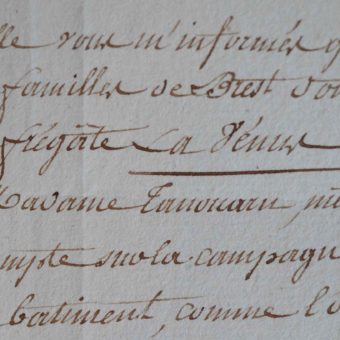 lle vous m'informés q
familles de Brest don
frégate La Vénus
Madame Tanouarn, m
mpte sur la campagn
batiment, comme l'o